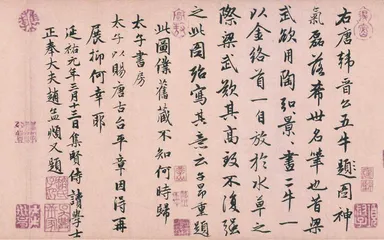 右唐韓晉公五牛題圖神
氣磊落希世名筆也昔梁
武欲用陶弘景〻畫二牛一
以金絡首一自放於水草之
際梁武歎其高致不復強
之此圖殆寫其意云子昂重題
此圖僕舊藏不知何時歸
太子書房
太子以賜唐古台平章因得再
展抑何幸耶
延祐元年三月十三日集賢侍講學士
正奉大夫趙孟頫又題